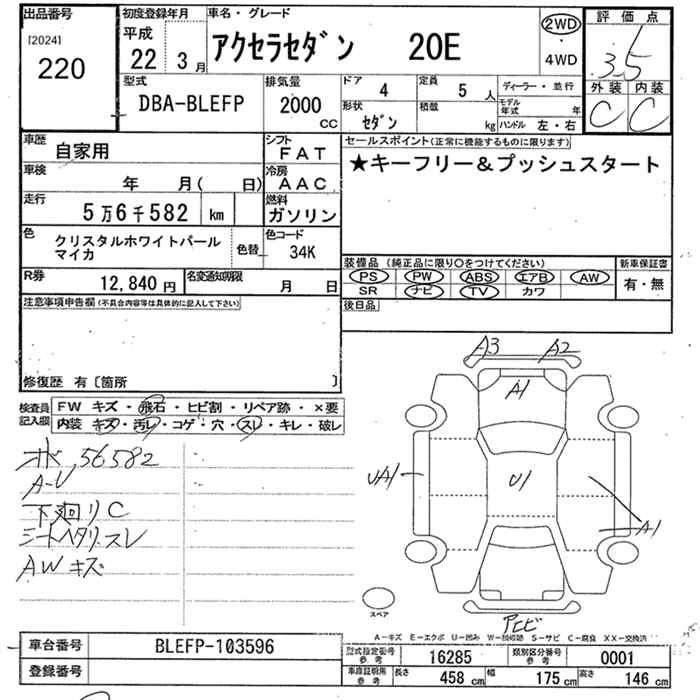 出品番号
[2024]
220
初度登録年月
平成
22 3月
車名・グレード
アクセラセダン 20E
2WD
・
4WD
評価点
3.5
外装 内装
C C
型式
DBA-BLEFP
排気量
2000
cc
ドア 4
定員 5人
ディーラー・並行
形状 セダン
積載 kg
モデル年式 年
ハンドル 左・右
車歴
自家用
シフト
FAT
セールスポイント(正常に機能するものに限ります)
★キーフリー&プッシュスタート
車検
年 月( 日)
冷房
AAC
走行
5万6千582 km
燃料
ガソリン
色
クリスタルホワイトパール
マイカ
色替
色コード
34K
装備品 (純正品に限り○をつけてください)
PS PW ABS エアB AW
SR ナビ TV カワ
新車保証書
有・無
R券
12,840円
名変通知期限
月 日
後日品
注意事項申告欄(不具合内容等は具体的に記入して下さい)
修復歴 有〔箇所 〕
検査員
記入欄
FW キズ・飛石・ヒビ割・リペア跡・×要
内装 キズ・汚レ・コゲ・穴・スレ・キレ・破レ
56582
A-V
下廻りC
シートヘタリスレ
AWキズ
A3 A2
A1
UA1
U1
A1
スペア
アヒビ
A-キズ E-エクボ U-凹み W-補修跡 S-サビ C-腐食 XX-交換済
車台番号
BLEFP-103596
登録番号
型式指定番号
参考
16285
類別区分番号
参考
0001
車庫証明用
参考
長さ 458 cm
幅 175 cm
高さ 146 cm